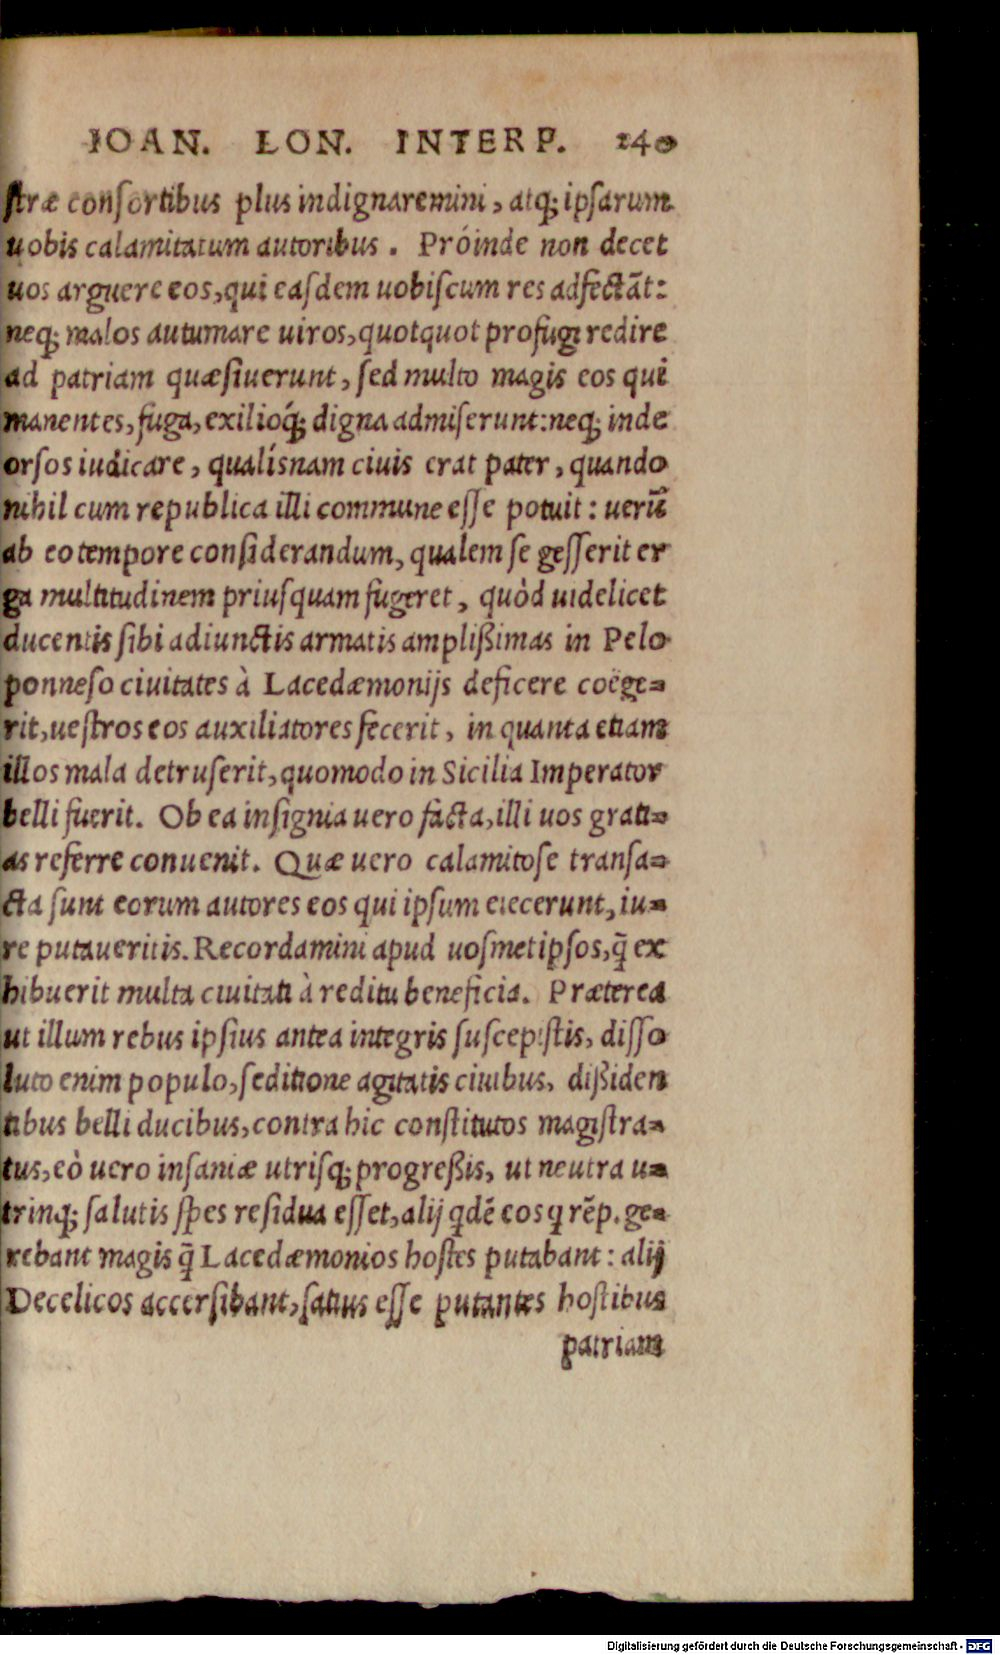 IOAN. LON. INTERP. 140
ſtræ conſortibus plus indignaremini, atq; ipſarum
uobis calamitatum autoribus. Próinde non decet
uos arguere eos, qui eaſdem uobiſcum res adfectāt:
neq; malos autumare uiros, quotquot profugi redire
ad patriam quæſiuerunt, ſed multo magis eos qui
manentes, fuga, exilióq́; digna admiſerunt: neq; inde
orſos iudicare, qualíſnam ciuis erat pater, quando
nihil cum republica illi commune eſſe potuit: uerũ
ab eo tempore conſiderandum, qualem ſe geſſerit er
ga multitudinem priuſquam fugeret, quòd uidelicet
ducentis ſibi adiunctis armatis ampliſsimas in Pelo
ponneſo ciuitates à Lacedæmonijs deficere coëge-
rit, ueſtros eos auxiliatores fecerit, in quanta etiam
illos mala detruſerit, quomodo in Sicilia Imperator
belli fuerit. Ob ea inſignia uero facta, illi uos grati-
as referre conuenit. Quæ uero calamitoſe transa-
cta ſunt eorum autores eos qui ipſum eiecerunt, iu-
re putaueritis. Recordamini apud uoſmetipſos, q̄ ex
hibuerit multa ciuitati à reditu beneficia. Præterea
ut illum rebus ipſius antea integris ſuscepiſtis, diſſo
luto enim populo, ſeditione agitatis ciuibus, diſsiden
tibus belli ducibus, contra hic conſtitutos magiſtra-
tus, eò uero inſaniæ utriſq; progreſsis, ut neutra u-
trinq; ſalutis ſpes reſidua eſſet, alij qdẽ eos q rẽp. ge-
rebant magis q̄ Lacedæmonios hoſtes putabant: alij
Decelicos accerſibant, ſatius eſſe putantes hoſtibus
patriam
Digitalisierung gefördert durch die Deutsche Forschungsgemeinschaft - DFG